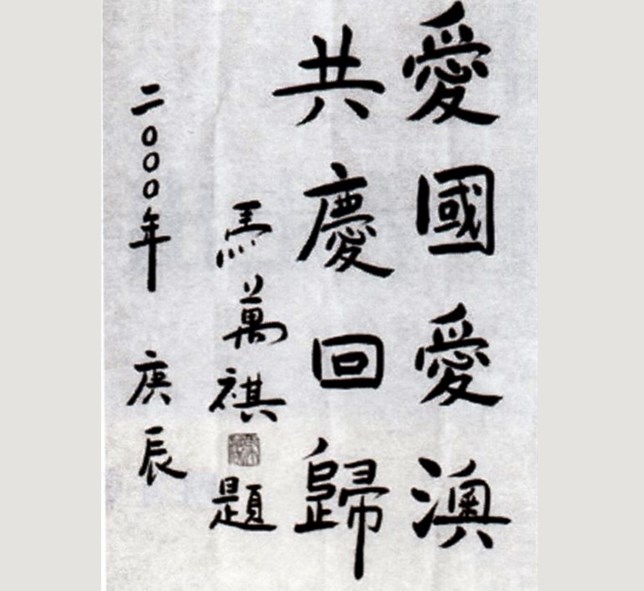 愛國愛澳
共慶回歸
馬萬祺題
二000年 庚辰